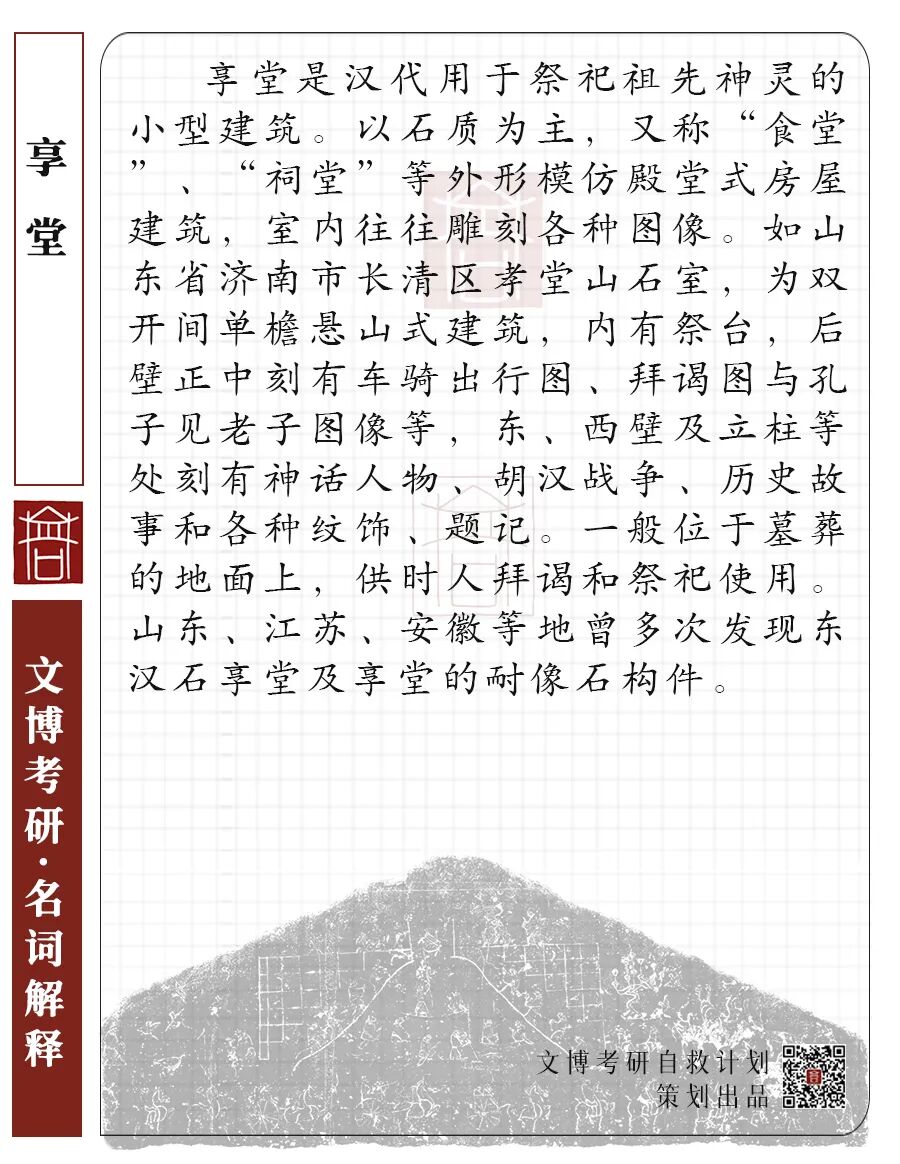 享堂
文博考研·名词解释
享堂是汉代用于祭祀祖先神灵的
小型建筑。以石质为主，又称“食堂
”、“祠堂”等外形模仿殿堂式房屋
建筑，室内往往雕刻各种图像。如山
东省济南市长清区孝堂山石室，为双
开间单檐悬山式建筑，内有祭台，后
壁正中刻有车骑出行图、拜谒图与孔
子见老子图像等，东、西壁及立柱等
处刻有神话人物、胡汉战争、历史故
事和各种纹饰、题记。一般位于墓葬
的地面上，供时人拜谒和祭祀使用。
山东、江苏、安徽等地曾多次发现东
汉石享堂及享堂的耐像石构件。
文博考研自救计划
策划出品